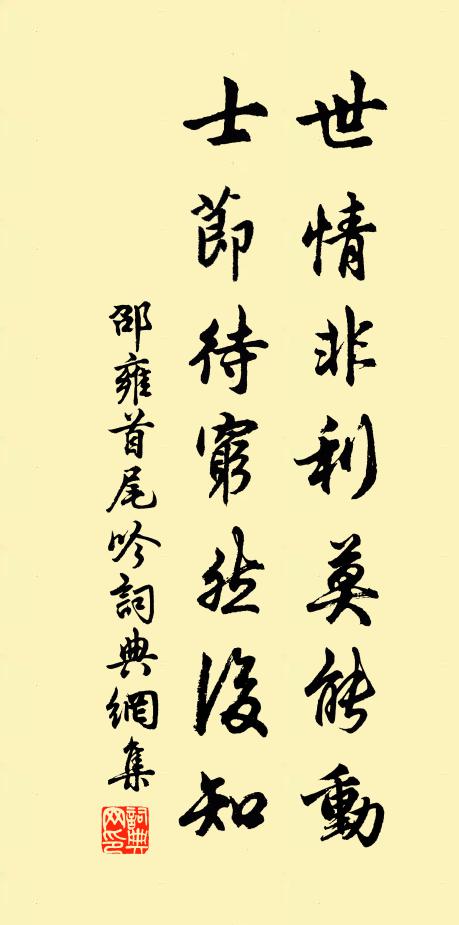 世情非利莫能動
士節待窮然後知
邵雍首尾吟詞典網集
詞典
网印